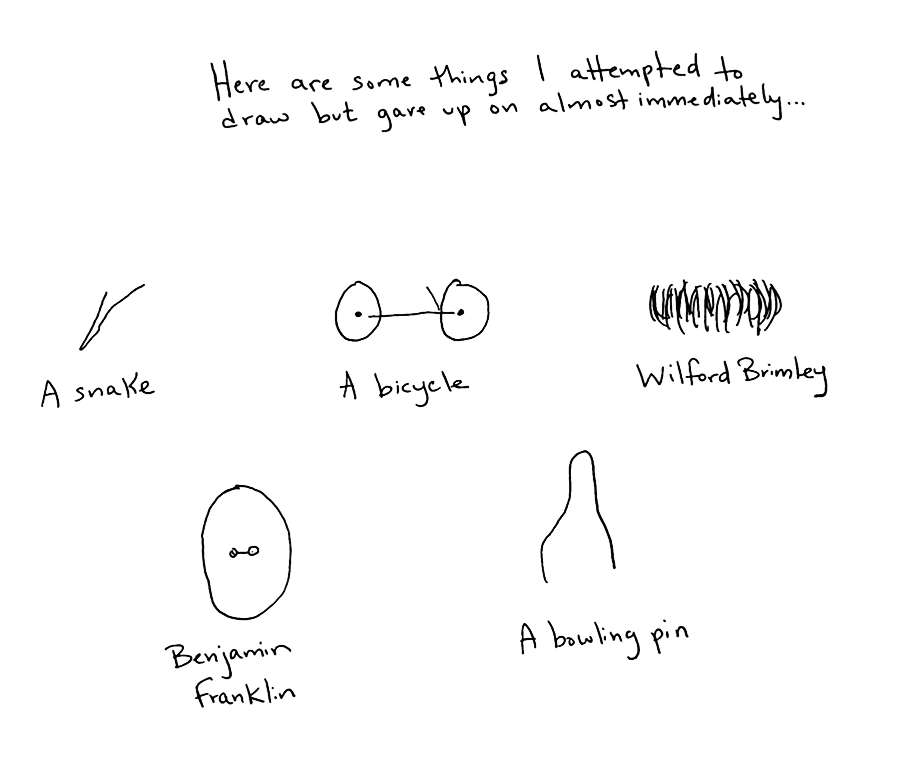 Here are some things I attempted to
draw but gave up on almost immediately...
A snake
A bicycle
Wilford Brimley
Benjamin
Franklin
A bowling pin